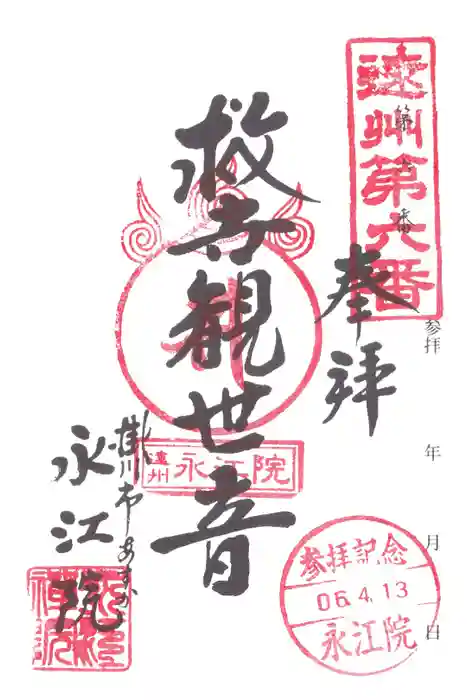 遠州第六番
第 番
奉拝
参拝 年 月 日
救世観世音
遠州 永江院
掛川市
永江院
参拝記念
06.4.13
永江院